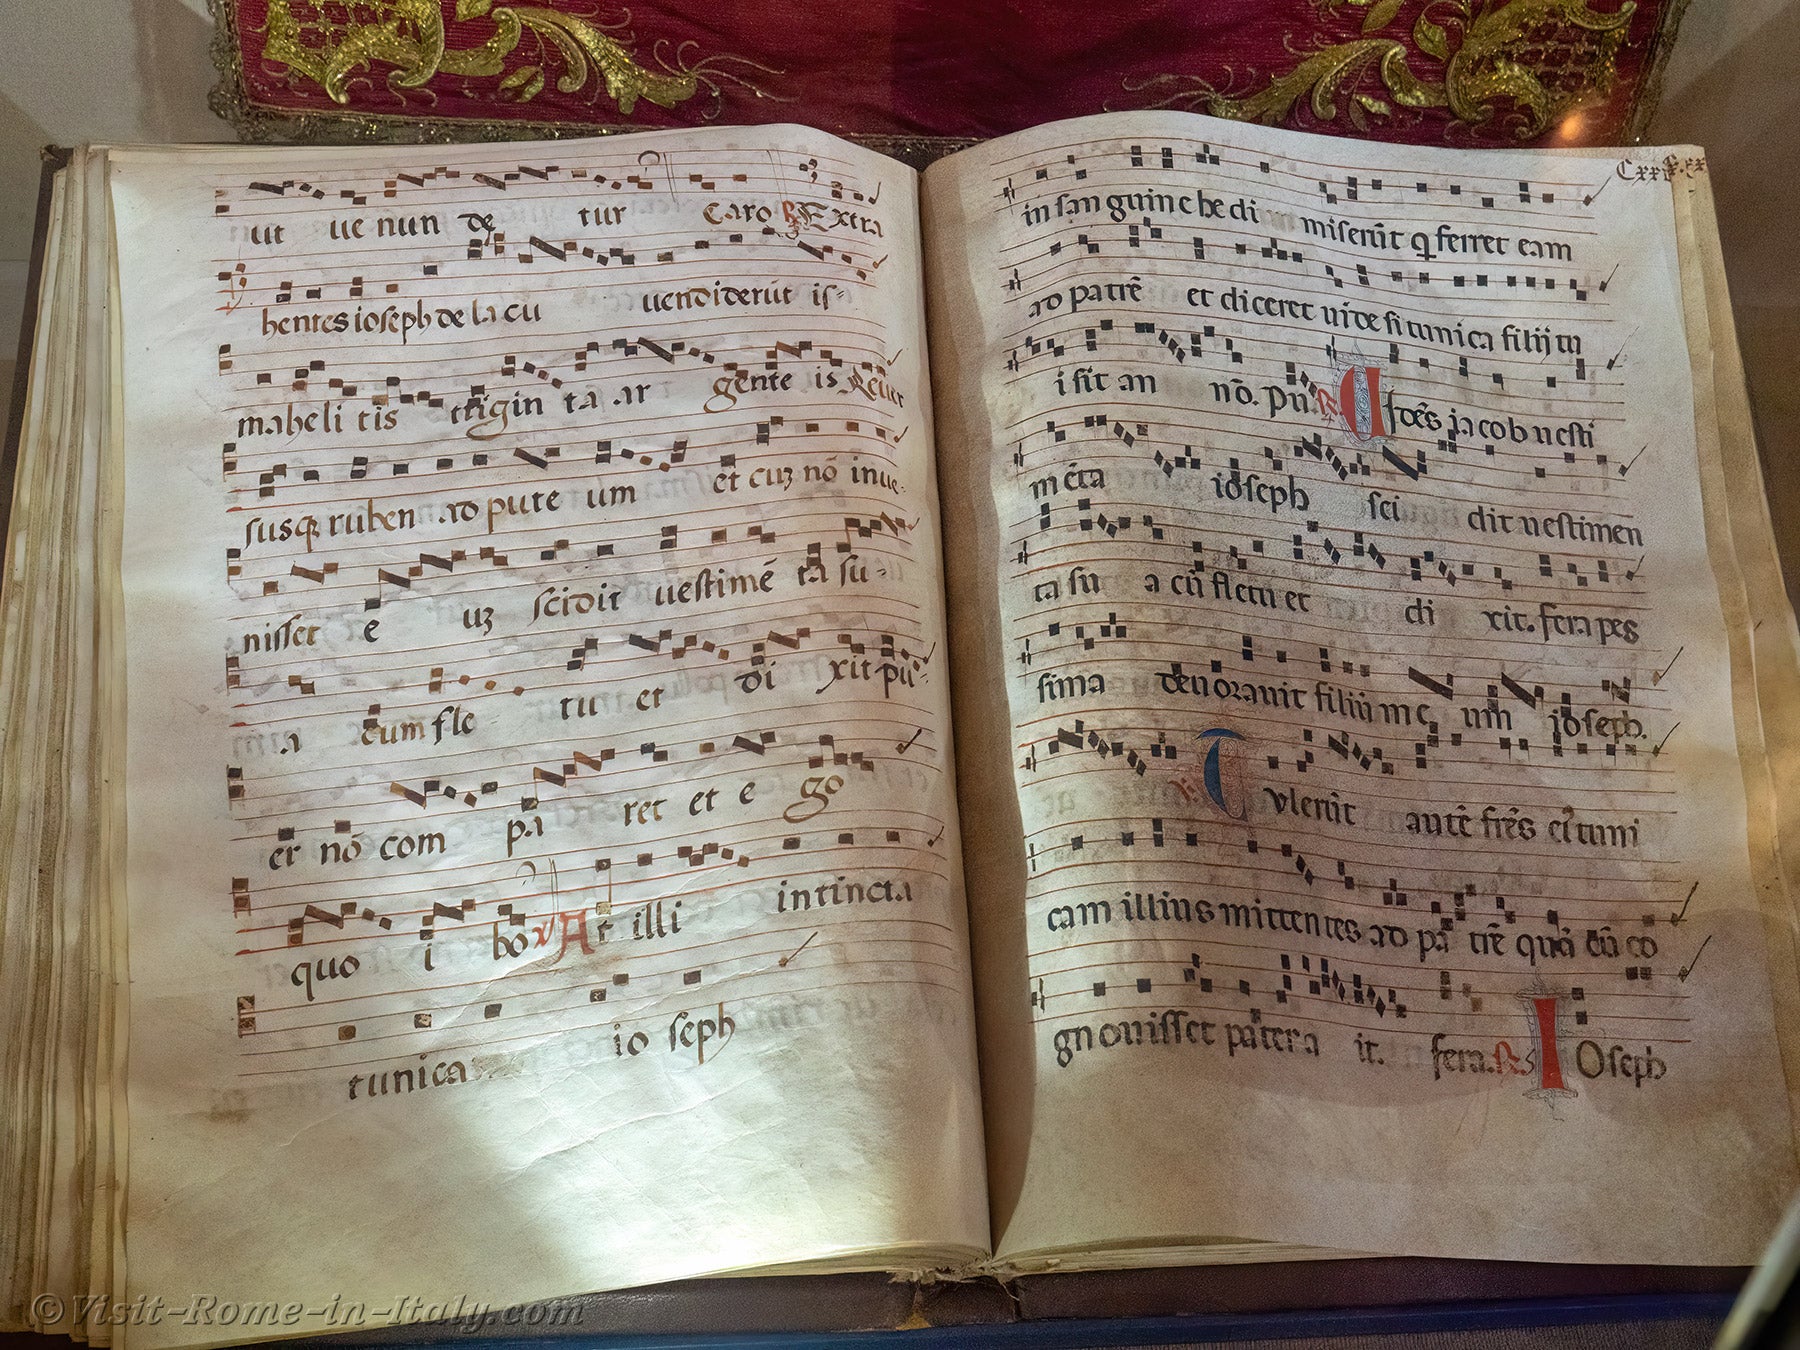 ut ue nun de tur Caro ℟ Extra
hentes ioseph de la cu uendiderūt is-
maheli tis trigin ta ar gente is Reuer
susq̄ ruben ad pute um et cuȝ nō inue-
nisset e uȝ scidit uestimē ta su-
a cum fle tu et di xit pu-
er nō com pa ret et e go
quo i bo ℣ At illi intincta
tunica io seph
Cxxi
in san guine he di miserūt q ferret eam
ad patrē et diceret uide si tunica filij tu
i sit an nō. pu. ℟. Uidēs iacob uesti
mēta ioseph sci dit uestimen
ta su a cū fletu et di xit. fera pes
sima deuorauit filiū me um ioseph.
℣. Tulerūt autē frēs ei tuni
cam illius mittentes ad pa trē quā cū co
gnouisset pater a it. fera. ℟ Ioseph
©Visit-Rome-in-Italy.com